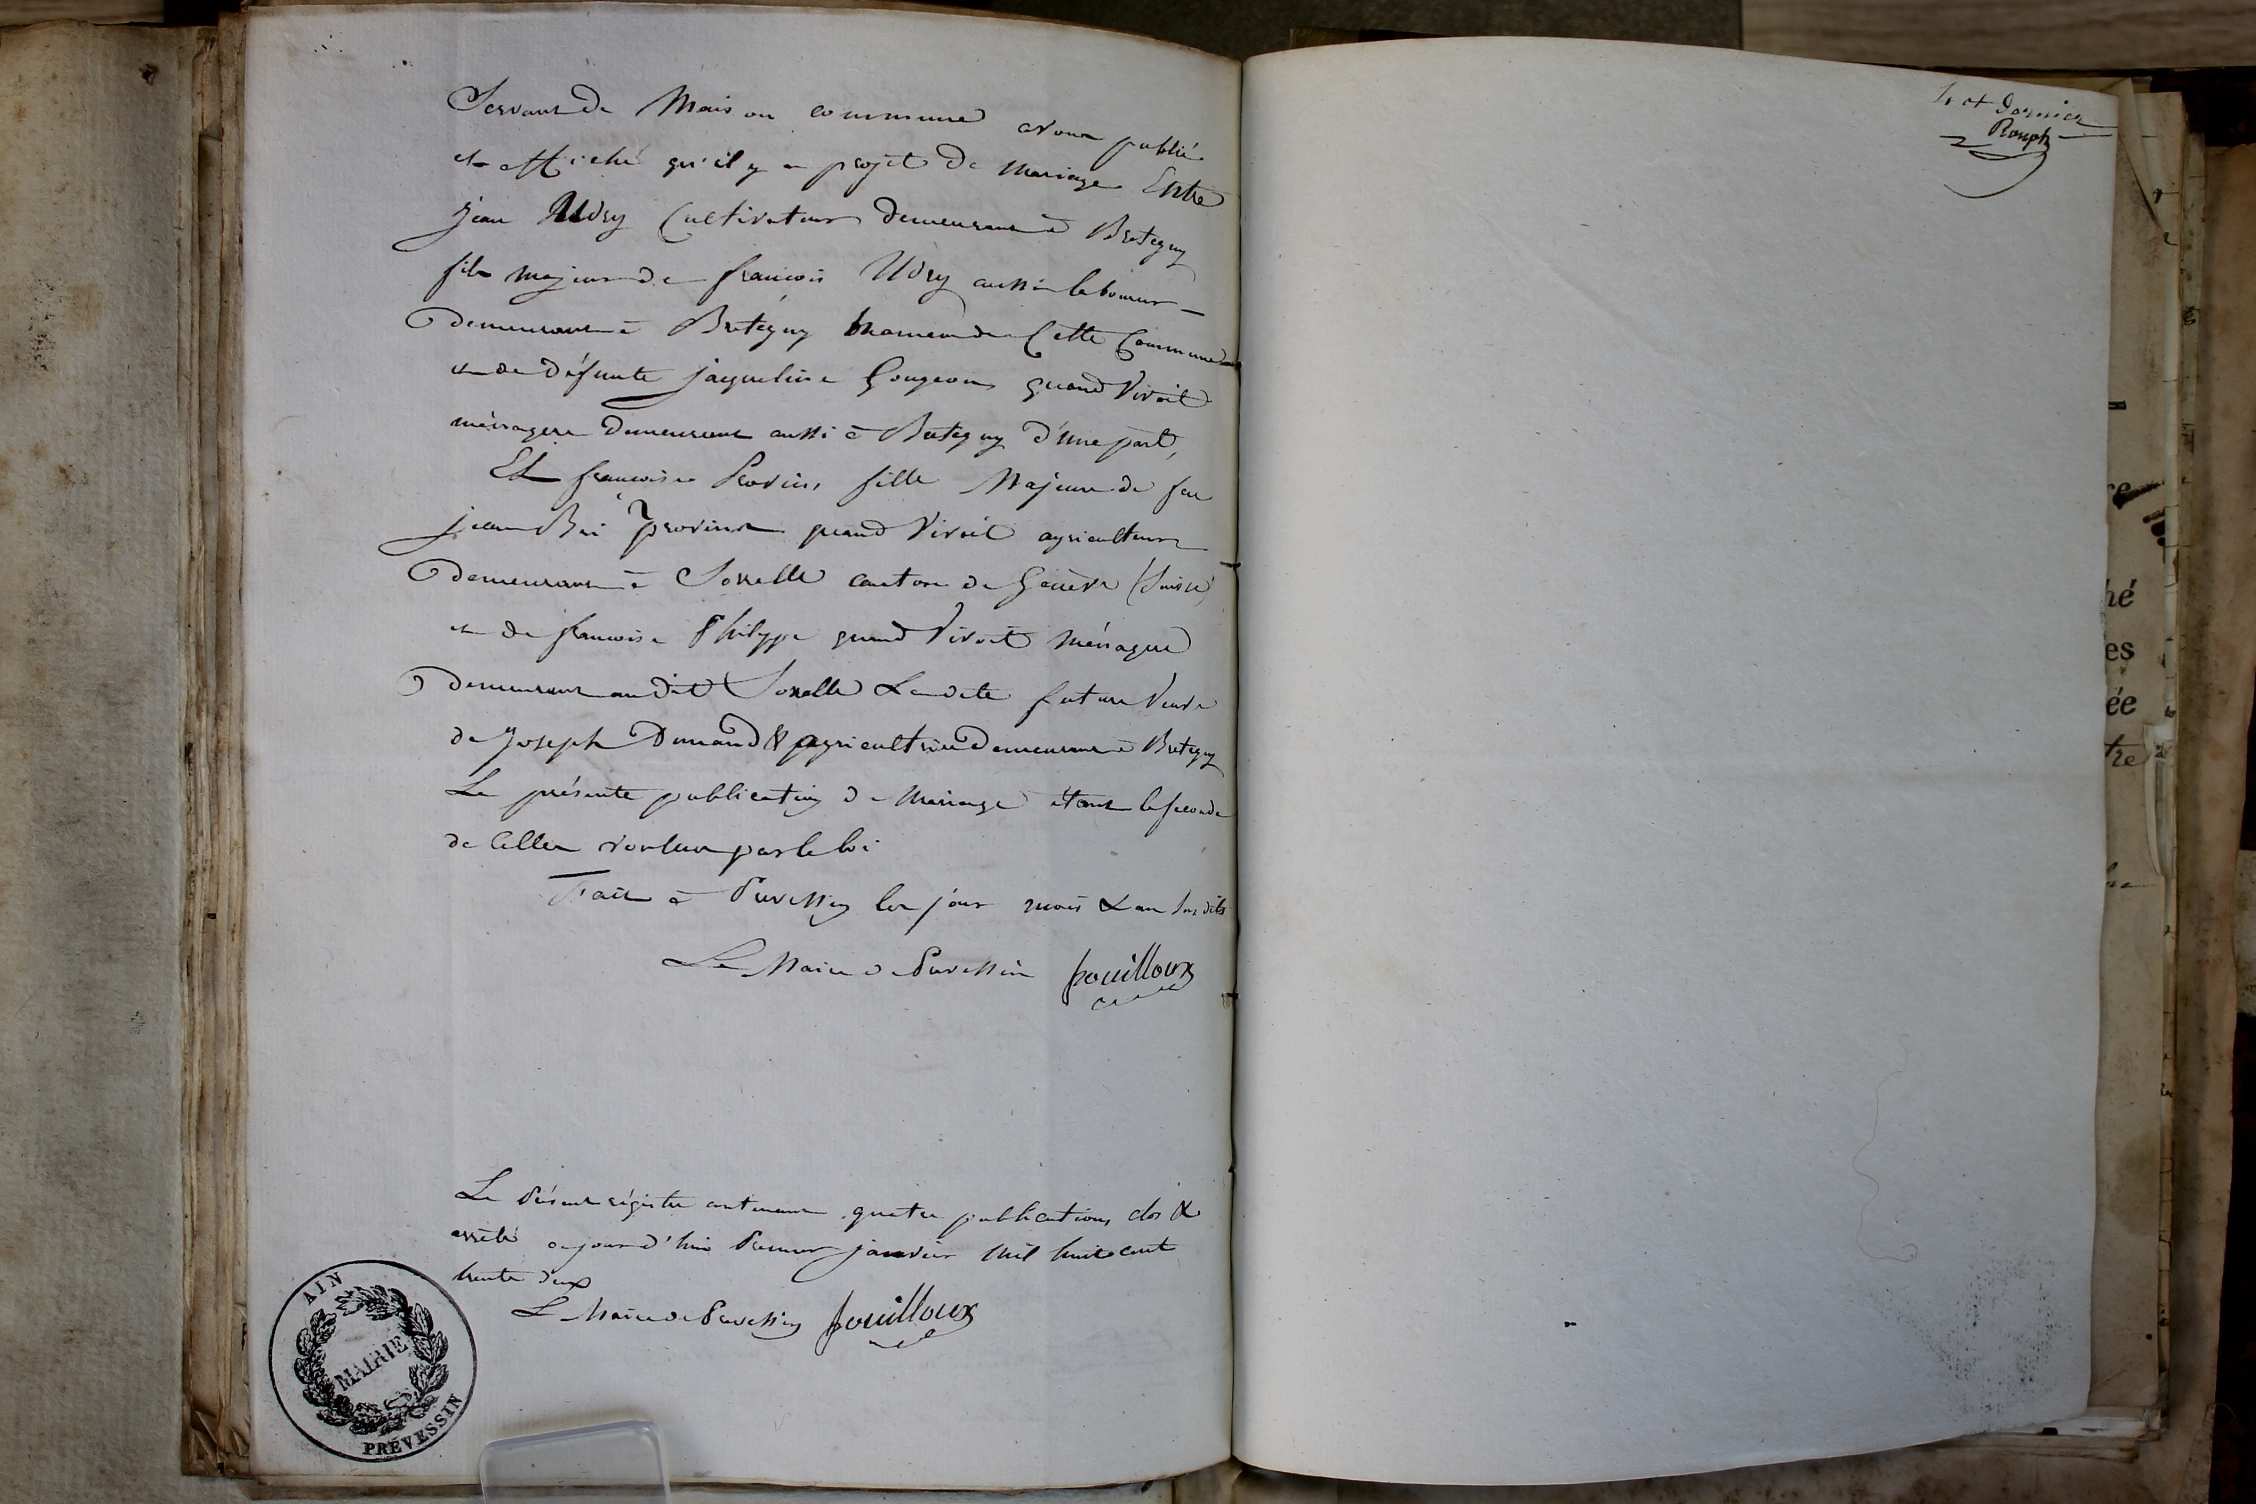 Servant de Maison commune avons publié
et affiché qu'il y a projet de mariage Entre
jean Udry Cultivateur demeurant à Bretegny
fils majeur de françois Udry aussi laboureur
demeurant à Bretegny hameau de Cette Commune
et de défunte jaqueline Gougeon quand Vivoit
ménagere demeurant aussi à Bretegny d'une part,
Et françoise Provins fille Majeure de feu
jean Provins quand Vivoit agriculteur
demeurant à canton de Genève (Suisse)
et de françoise Philippe quand Vivoit Ménagere
demeurant audit Ladite future Veuve
de Joseph Dunand & agricultrice demeurant à Bretegny
La présente publication de Mariage étant la seconde
de Celles voulues par la loi
Fait à Prevessin les jour mois & an susdits
Le Maire de Prevessin Fouilloux
Le Présent régistre contenant quatre publications clos &
arrêté aujourd'hui Premier janvier mil huit cent
trente deux
Le Maire de Prevessin Fouilloux
AIN
MAIRIE
PRÉVESSIN
et dernier
hé
es
ée
tre